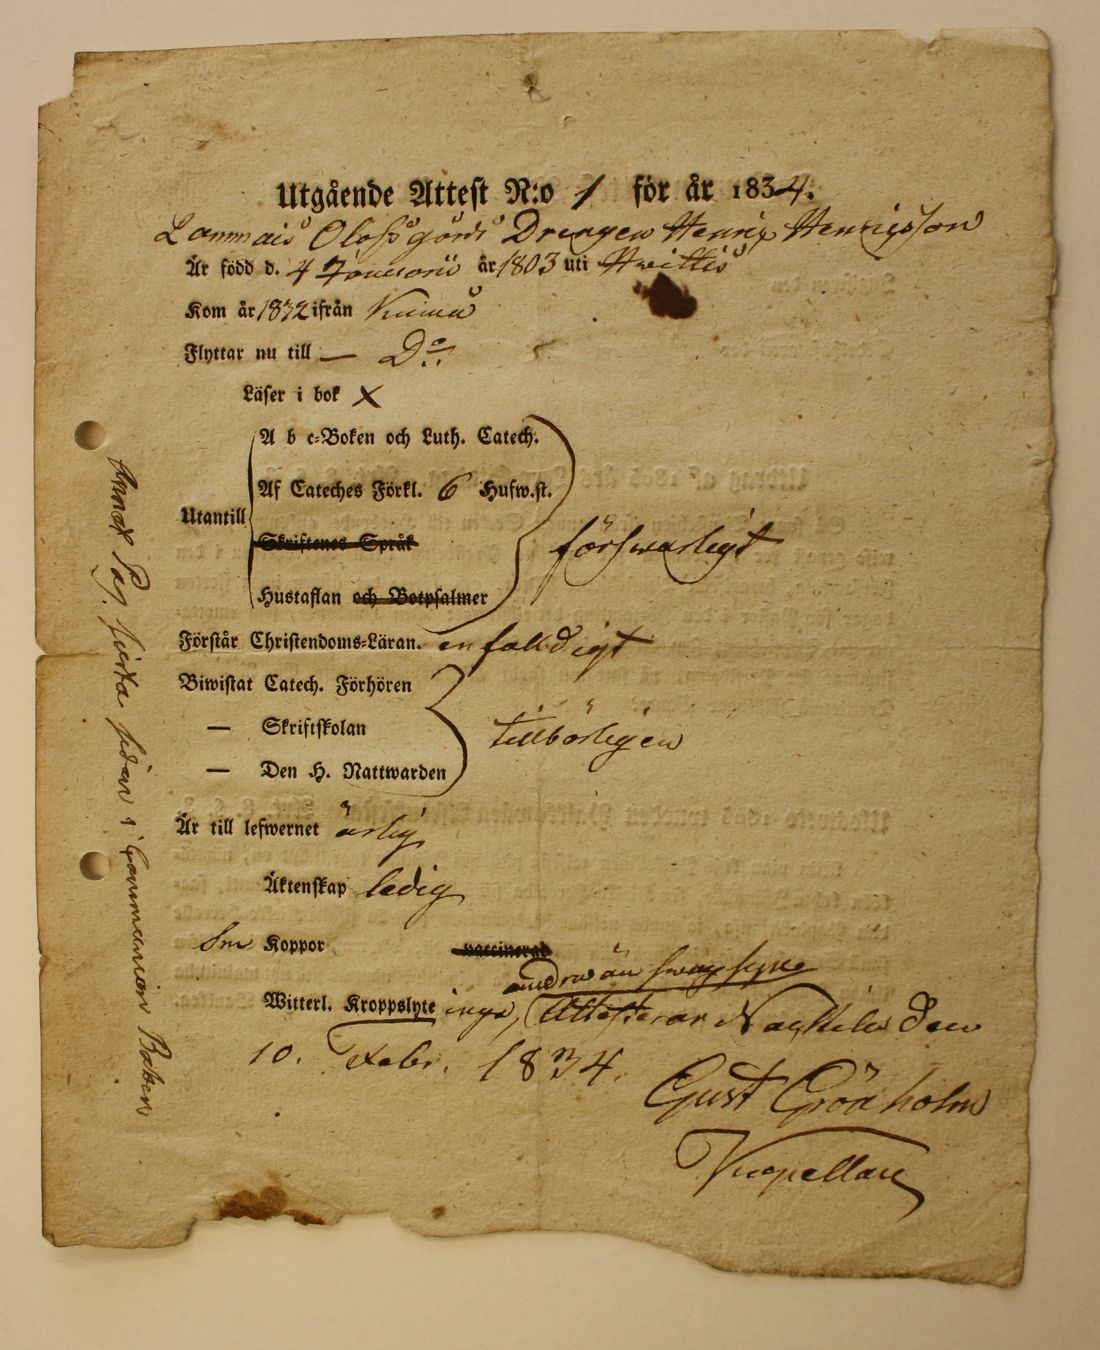 Utgående Attest N:o 1 för år 1834.
Lammais Olofsgårds Drengen Henrix Henricsson
Är född d. 4 Januarii år 1803 uti Hvittis
Kom år 1832 ifrån Kumo
Flyttar nu till — Do
Läser i bok X
A b c-Boken och Luth. Catech.
Af Cateches Förkl. 6 Hufw.st.
Utantill
Skriftenes Språk
försvarligt
Hustaflan och Botpsalmer
Förstår Christendoms-Läran. enfalldigt
Biwistat Catech. Förhören
— Skriftskolan
tillbörligen
— Den H. Nattwarden
Är till lefwernet ärlig
Äktenskap ledig
Koppor vaccinerad
Witterl. Kroppslyte inga, Attesterar Nackila den
10. Febr. 1834.
Gust Grönholm
Kapellan
sidan i Communion Boken